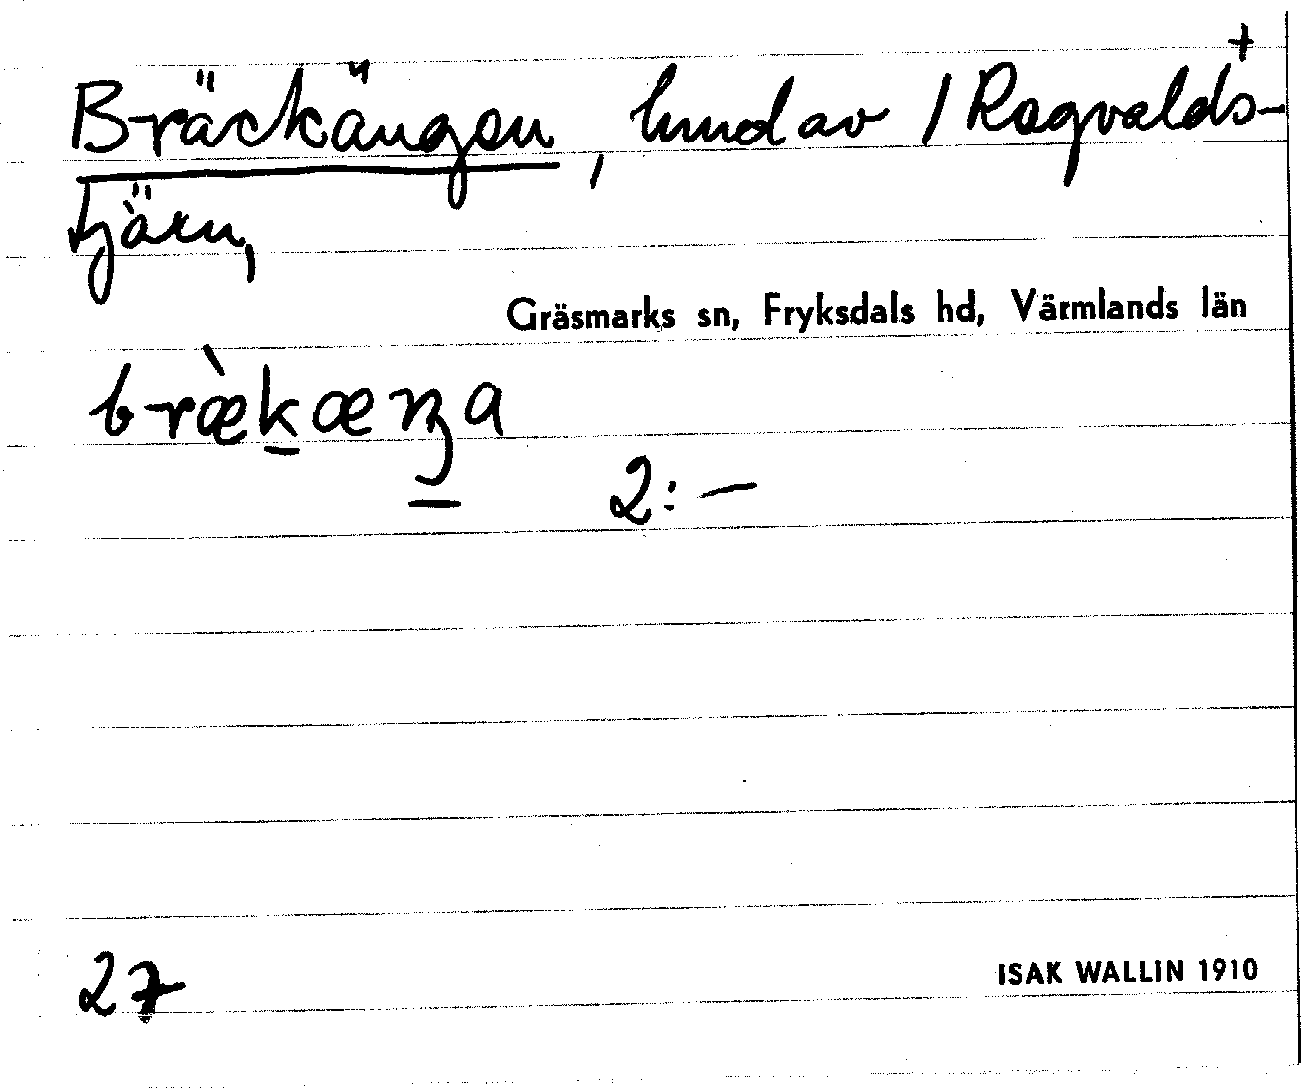 +
Bräckängen, hmd av 1 Ragvalds-
tjärn,
Gräsmarks sn, Fryksdals hd, Värmlands län
bræ̀kæŋa
2:-
27
ISAK WALLIN 1910